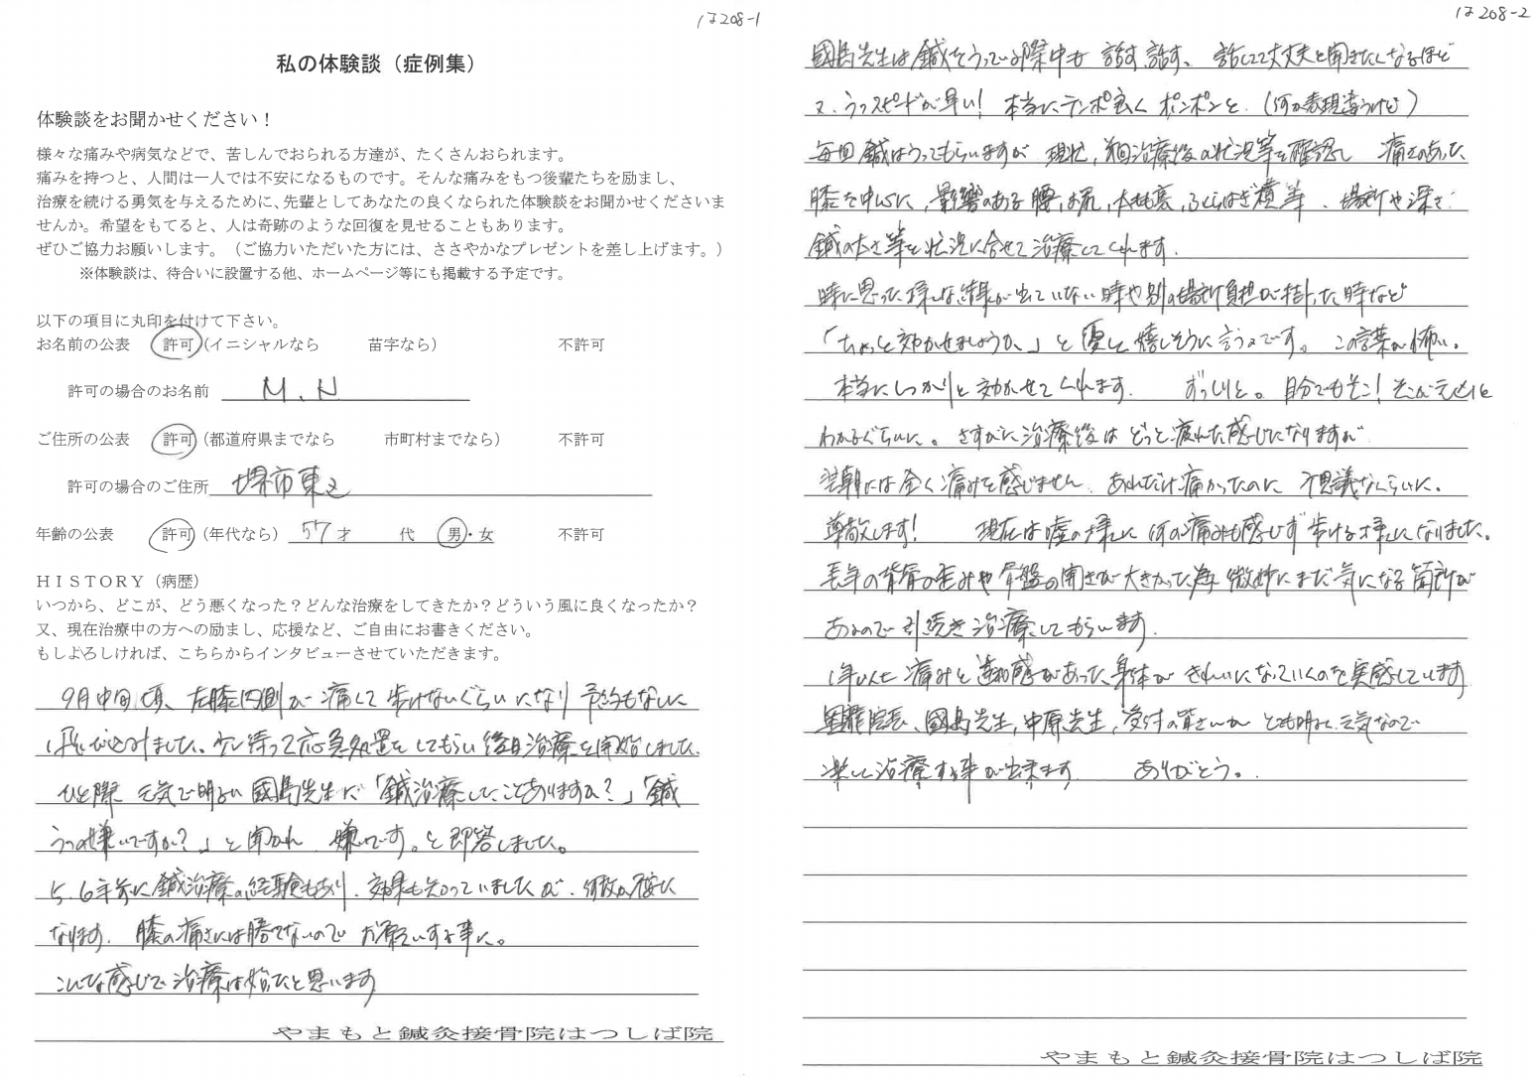 は208-1
私の体験談（症例集）
体験談をお聞かせください！
様々な痛みや病気などで、苦しんでおられる方達が、たくさんおられます。
痛みを持つと、人間は一人では不安になるものです。そんな痛みをもつ後輩たちを励まし、
治療を続ける勇気を与えるために、先輩としてあなたの良くなられた体験談をお聞かせくださいま
せんか。希望をもてると、人は奇跡のような回復を見せることもあります。
ぜひご協力お願いします。（ご協力いただいた方には、ささやかなプレゼントを差し上げます。）
※体験談は、待合いに設置する他、ホームページ等にも掲載する予定です。
以下の項目に丸印を付けて下さい。
お名前の公表 許可（イニシャルなら 苗字なら） 不許可
許可の場合のお名前 M.N
ご住所の公表 許可（都道府県までなら 市町村までなら） 不許可
許可の場合のご住所 堺市東区
年齢の公表 許可（年代なら） 57才 代 男・女 不許可
ＨＩＳＴＯＲＹ（病歴）
いつから、どこが、どう悪くなった？どんな治療をしてきたか？どういう風に良くなったか？
又、現在治療中の方への励まし、応援など、ご自由にお書きください。
もしよろしければ、こちらからインタビューさせていただきます。
9月中旬頃、左膝内側が痛くて歩けないぐらいになり 予約もなしに
飛び込みました。少し待って応急処置をしてもらい後日治療を開始しました。
ひと際 元気で明るい國島先生に「鍼治療したことありますか？」「鍼
うつの嫌いですか？」と聞かれ 嫌いです。と即答しました。
5、6年前に鍼治療の経験もあり、効果も知っていましたが、何故か
なります。膝の痛さには勝てないので お願いする事に。
こんな感じで治療は始ったと思います
やまもと鍼灸接骨院はつしば院
は208-2
國島先生は鍼をうっている際中も 話す、話す、 話してて丈夫と聞きたくなるほど
又、うつスピードが早い！ 本当にテンポ良くポンポンと、（何か表現違うけど）
毎回鍼はうってもらいますが 現状、前回治療後の状況等を確認し 痛さのあった
膝を中心に、影響のある腰、お尻、太もも裏、ふくらはぎ横等、場所や深さ、
鍼の太さ等を状況に合せて治療してくれます。
時に思った様な結果が出ていない時や別の場所負担が掛った時など
「ちょっと効かせましょうか。」と優しく嬉しそうに言うのです。この言葉が怖い。
本当にしっかりと効かせてくれます。 ずっしりと。自分でもそこ！そこが元凶と
わかるぐらいに。さすがに治療後はどっと疲れた感じになりますが
翌朝には全く痛みを感じません。あれだけ痛かったのに 不思議なくらいに。
尊敬します！ 現在は嘘の様に何の痛みも感じず歩ける様になりました。
長年の背骨の歪みや骨盤の開きが大きかった為 微妙にまだ気になる箇所が
あるので引続き治療してもらいます。
痛みと違和感があった身体が きれいになっていくのを実感しています
院長、國島先生、中原先生、受付の皆さんが とても明るく元気なので
楽しく治療する事が出来ます。 ありがとう。
やまもと鍼灸接骨院はつしば院